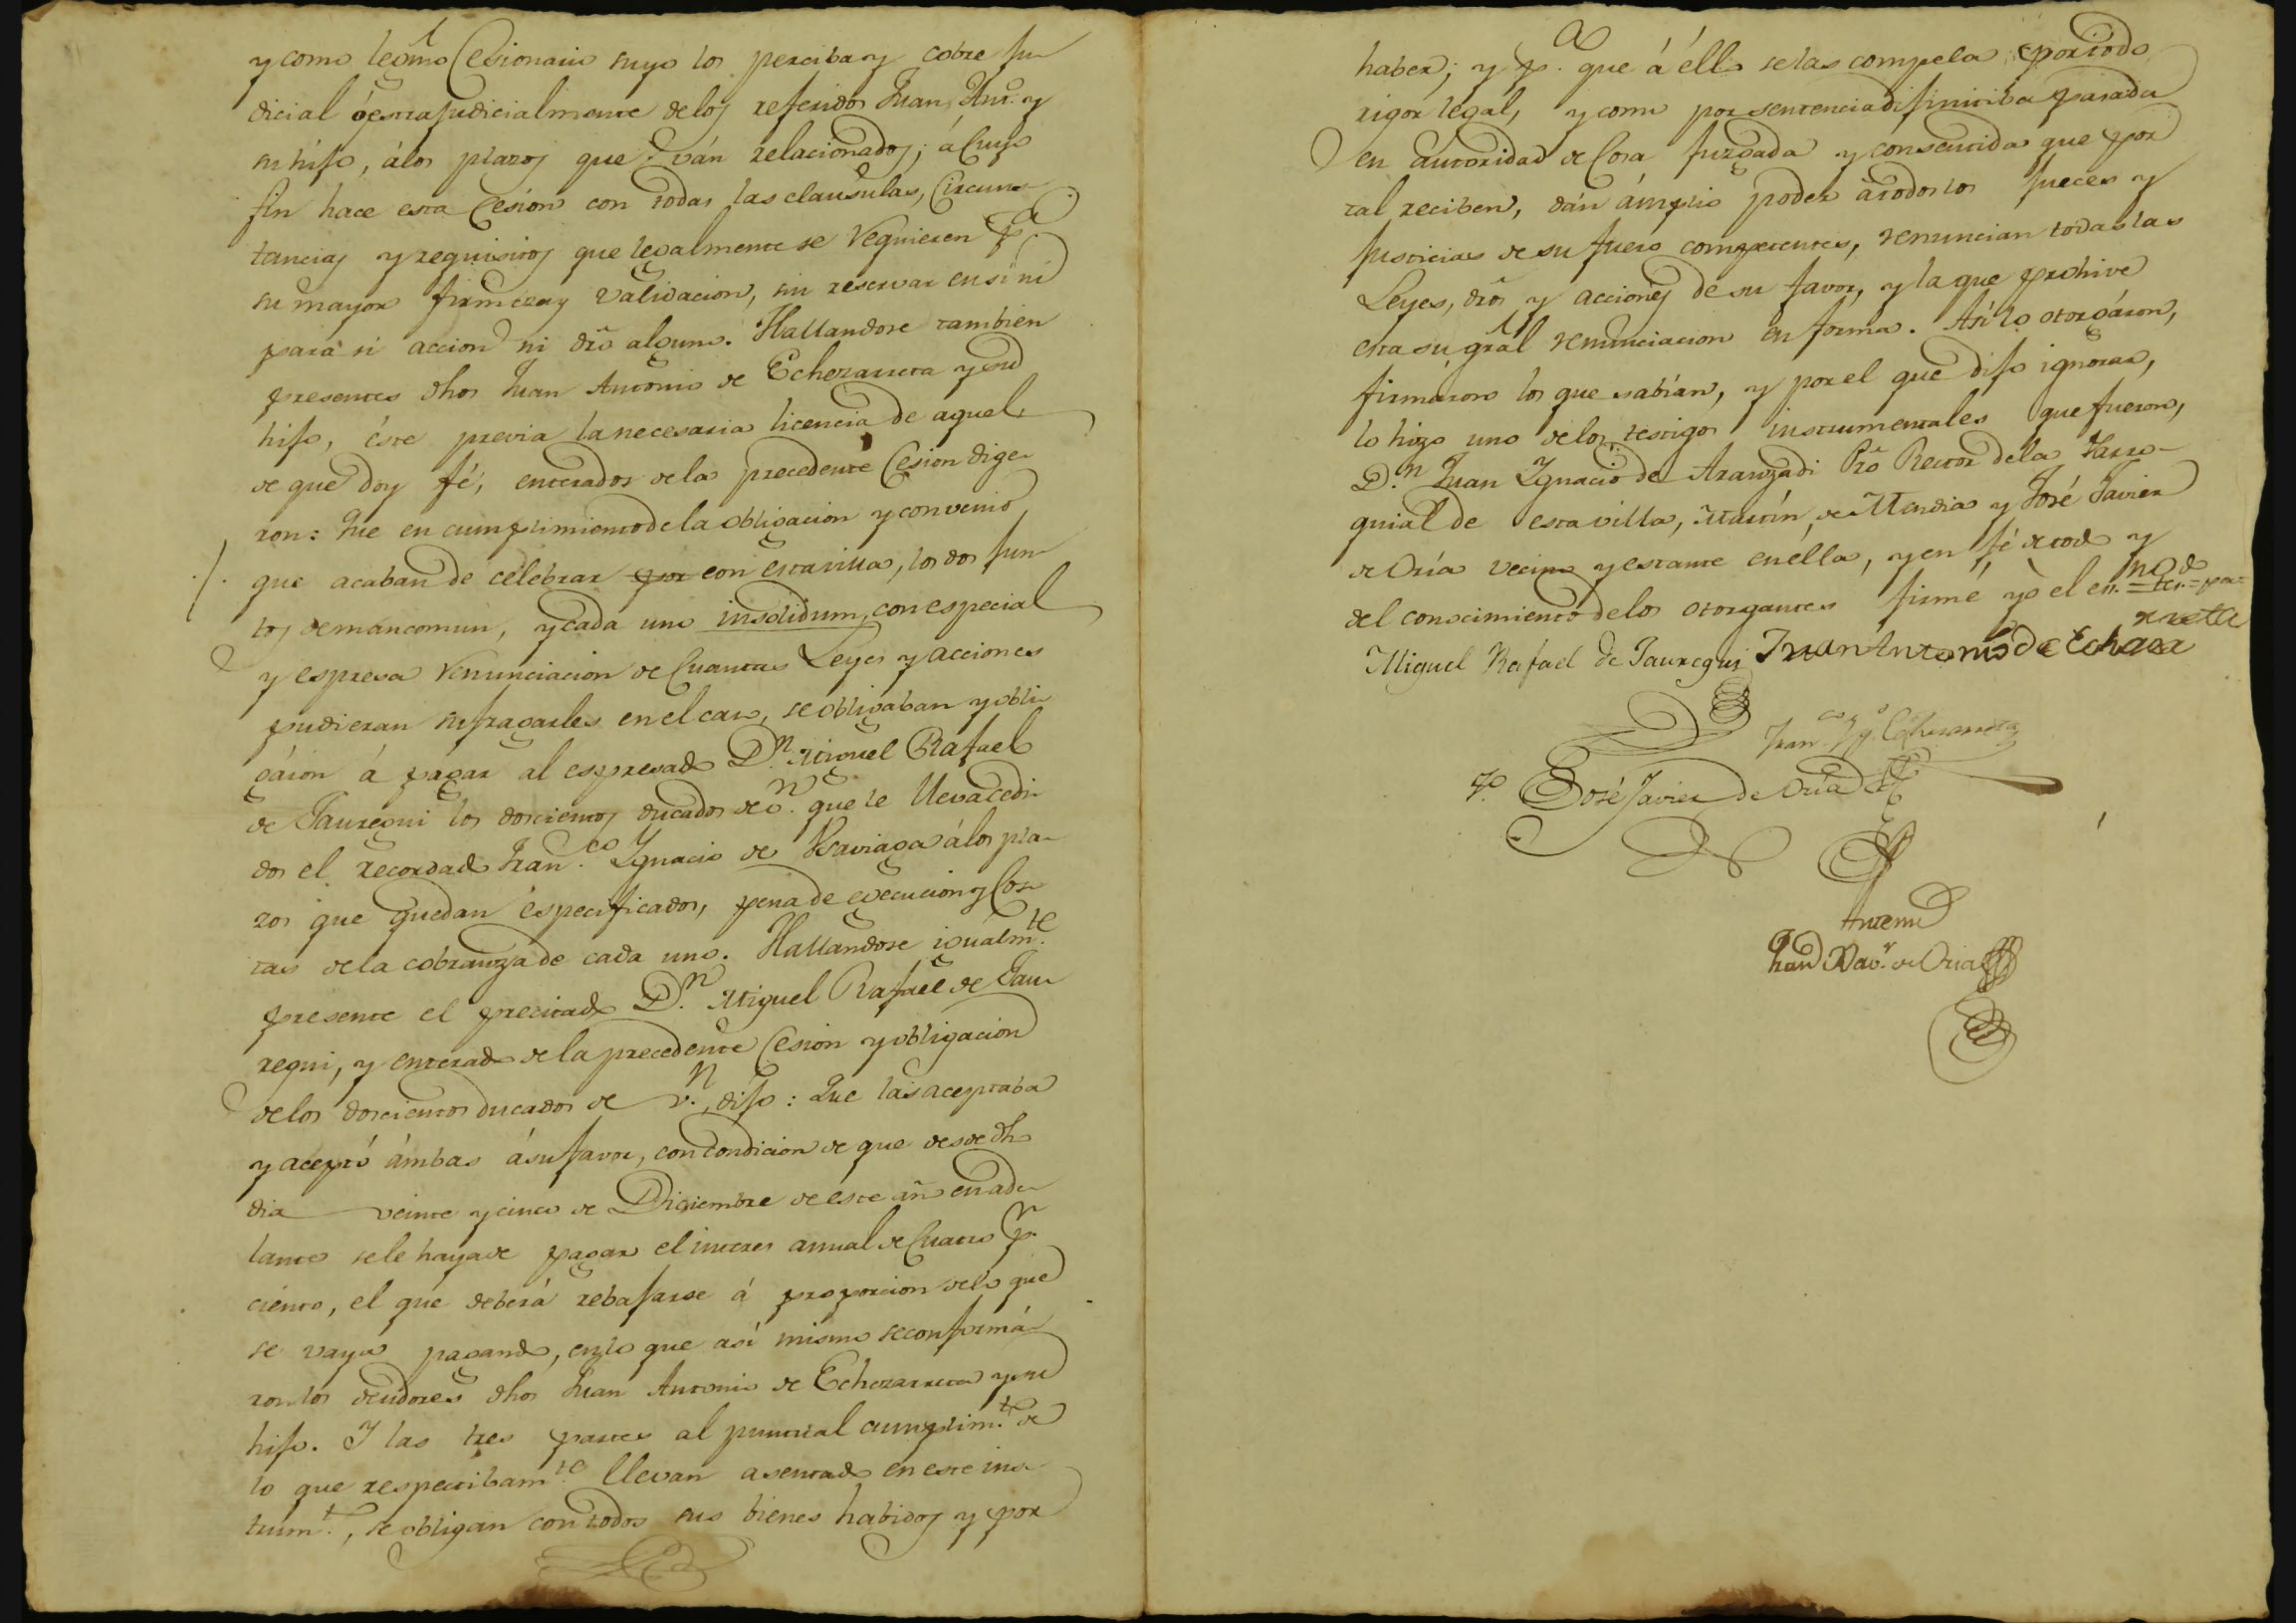 y como legmo Cesionario suyo los perciba y cobre ju-
dicial ó estrajudicialmente de los referidos Juan Anto. y
su hijo, á los plazos que ván relacionados; á cuyo
fin hace esta Cesion con todas las clausulas, Circuns-
tancias y requisitos que legalmente se requieren pa.
su mayor firmeza y validacion, sin reservar en sí ni
para si accion ni dro alguno. Hallandose tambien
presentes dhos Juan Antonio de Echezarreta y su
hijo, éste previa la necesaria licencia de aquel
de que doy fé, enterados de la precedente Cesion dige-
ron: Que en cumplimiento de la obligacion y convenio
que acaban de celebrar por con esta villa, los dos jun-
tos de mancomun, y cada uno insolidum, con especial
y espresa renunciacion de Cuantas Leyes y acciones
pudieran sufragarles en el caso, se obligaban y obli-
gáron á pagar al espresado Dn. Miguel Rafael
de Jauregui los doscientos ducados de vn. que le lleva cedi-
dos el recordado Franco. Ygnacio de Ysaviaga á los pla-
zos que quedan éspecificados, pena de egecucion y Cos-
tas de la cobranza de cada uno. Hallandose igualmte.
presente el precitado Dn. Miguel Rafaél de Jau-
regui, y enterado de la precedente Cesion y obligacion
de los doscientos ducados de vn. dijo: Que las aceptaba
y aceptó ámbas á su favor, con condicion de que desde dho
dia veinte y cinco de Diciembre de este año en ade-
lante se le haya de pagar el interes annual de Cuatro pr.
ciento, el que deberá rebajarse á proporcion de lo que
se vaya pagando, en lo que así mismo se conformá-
ron los deudores dhos Juan Antonio de Echezarreta y su
hijo. Y las tres partes al puntual cumplimto. de
lo que respectibamte. llevan asentado en este ins-
trumto., se obligan con todos sus bienes habidos y por
haber; y pa. que á éllo se las compela por todo
rigor legal, y como por sentencia difinitiba pasada
en autoridad de Cosa juzgada y consentida que por
tal reciben, dán ámplio poder á todos los jueces y
justicias de su fuero competentes, renuncian todas las
Leyes, dros y acciones de su favor, y la que prohive
esta su gral renunciacion en forma. Así lo otorgáron,
firmáron los que sabían, y por el que dijo ignorar,
lo hizo uno de los testigos instrumentales que fueron,
Dn. Juan Ygnacio de Aranzadi Pro Rector de la Parro-
quial de esta villa, Martín de Mendia y José Javier
de Oria vecinos y estante en élla, y en fé de todo y
del conocimiento de los otorgantes firmé yo el esno.
Miguel Rafael de Jauregui Juan Antonio De Echeza
rreta
Franco. Ygo. Echezarreta
To. José Javier de Oria
Antemi
Juan Bav. de Oria